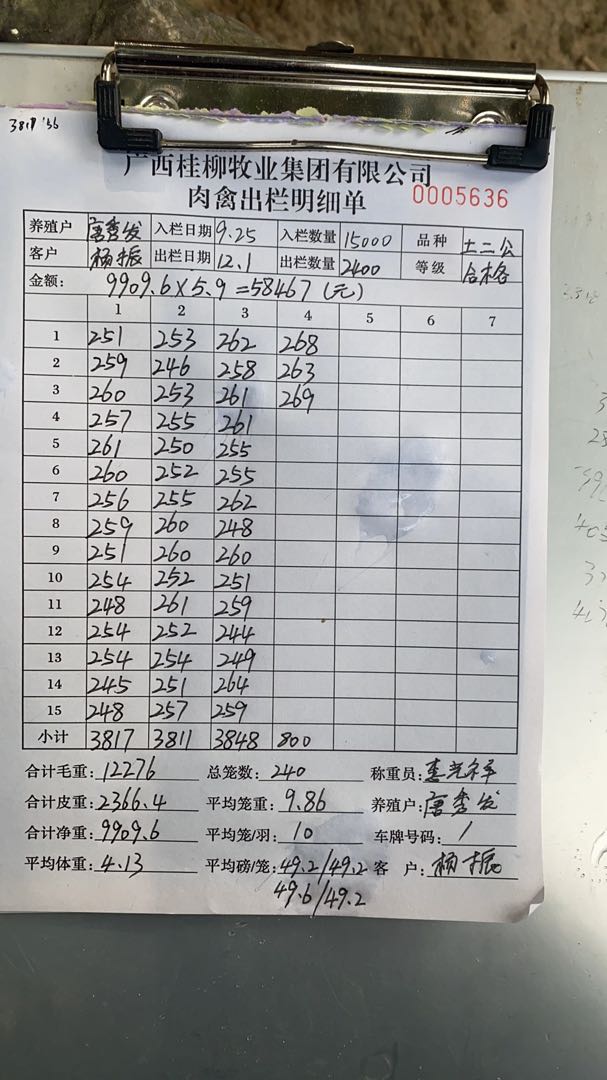 3817 '56
广西桂柳牧业集团有限公司
肉禽出栏明细单 0005636
养殖户 唐秀发 入栏日期 9.25 入栏数量 15000 品种 土二公
客户 杨振 出栏日期 12.1 出栏数量 2400 等级 合格
金额: 9909.6×5.9=58467(元)
1 2 3 4 5 6 7
1 251 253 262 268
2 259 246 258 263
3 260 253 261 269
4 257 255 261
5 261 250 255
6 260 252 255
7 256 255 262
8 259 260 248
9 251 260 260
10 254 252 251
11 248 261 259
12 254 252 244
13 254 254 249
14 245 251 264
15 248 257 259
小计 3817 3811 3848 800
合计毛重: 12276 总笼数: 240 称重员:
合计皮重: 2366.4 平均笼重: 9.86 养殖户: 唐秀发
合计净重: 9909.6 平均笼/羽: 10 车牌号码: /
平均体重: 4.13 平均磅/笼: 49.2/49.2 客 户: 杨振
49.6/49.2